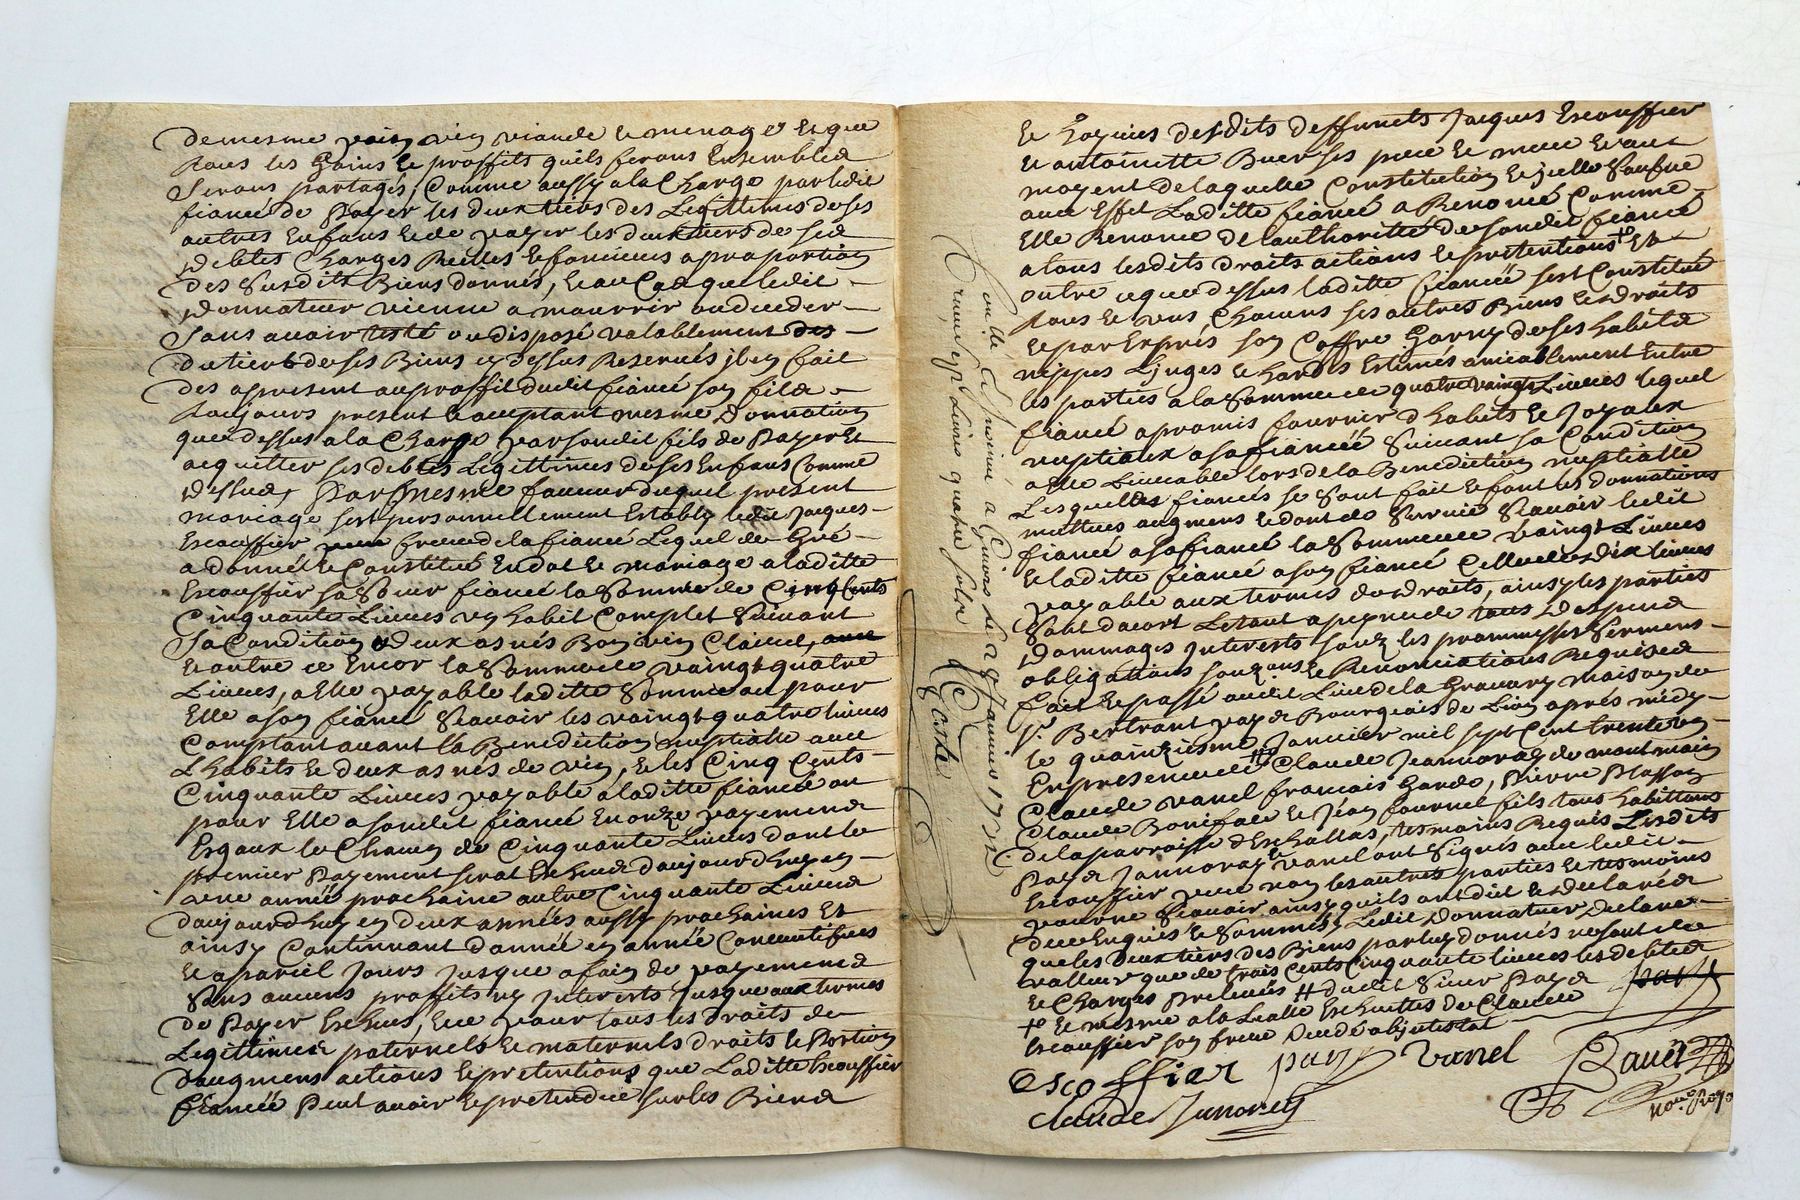 de mesme pain vin viande et menage et que
tous les gains et proffits quils feront Ensembles
seront partagés, Comme aussy a la Charge par ledit
fiancé de payer les deux tiers des Legittimes de ses
autres Enfans et de payer les deux tiers de ses
debtes Charges Reelles et foncieres a proportion
des susdits Biens donnés, et au Cas que ledit
donnateur vienne a mourrir ou deceder
sans avoir testé ou disposé valablement des
du tiers de ses Biens cy dessus Reservés il en fait
des apresent au proffit dudit fiancé son fils
toujours present et acceptant mesme donnation
que dessus a la Charge par sondit fils de payer et
acquitter ses debtes Legittimes de ses Enfans Comme
dessus, Par mesme faveur duquel present
mariage sest personnellement Estably ledit jacques
Escouffier frere de la fiancé Lequel de Gré
a donné et Constitué En dot et mariage a laditte
Escouffier sa soeur fiancé la somme de Cinq Cents
Cinquante Livres un habit Complet suivant
sa Condition deux asnés Bon vin Clairet,
et outre ce Encor la somme de vaingt quatre
Livres, a Elle payable laditte somme ou pour
Elle a son fiancé scavoir les vaingt quatre livres
Comptant avant la Benediction nuptialle avec
L habits et deux asnés de vin, et les Cinq Cents
Cinquante Livres payable a laditte fiancée ou
pour Elle a sondit fiancé En onze payements
Esgaux le Chacun de Cinquante Livres dont le
premier payement serat Escheu d aujourdhuy en
une année prochaine autre Cinquante Livres
daujourdhuy en deux années aussy prochaines Et
ainsy Continuant d année en année Consecutifves
et a pareil jours jusque a fain de payements
sans aucuns proffits ny Interests jusque aux termes
de payer Escheus, Ece pour tous les droits de
Legittimes paternels et maternels droits et Portion
daugment actions et pretentions que Laditte Escouffier
fiancée Peut avoir et pretendre sur les Biens
Controllé a Givors le 29 janvier 1732
Receu sept Livres quatre sols
Coste
et hoyries desdits deffuncts Jacques Escouffier
et antoinette Buer ses pere et mere et au
moyent de laquelle Constitution et jcelle
avec Effet Laditte fiancé a Renoncé Comme
Elle Renonce de l authorité de sondit fiancé
a tous lesdits droits actions et pretentions Et
outre ce que dessus laditte fiancée sest Constitué
tous et uns Chacuns ses autres Biens et droits
et par Exprés son Coffre Garny de ses habits
nippes Linges et hardes Estimés amicablement Entre
les parties a la somme de quatre vaingts Livres lequel
fiancé a promis fournir d habits et joyaux
nuptiaux a sa fiancéé suivant sa Condition
a Elle Livrable lors de la Benediction nuptialle
Lesquelles fiancés se sont fait et font les donnations
mutues augment et dont de survie scavoir ledit
fiancé a sa fiancé la somme de vaingt Livres
et laditte fiancé a son fiancé Celle de dix livres
payable aux termes de droits, ainsy les parties
sont dacort Le tout a peyne de tous despend
dommages Interests souz les prommesses sermens
obligations souz ons et Renonciations Requises
fait et passé audit Lieu de la Gravary maison du
sr. Bertrant paya Bourgeois de Lion aprés midy
le quainziesme janvier mil sept Cent trente un
En presence de Claude Jeannoray de mont main
Claude vanel francais Garde, Pierre Plasson
Claude Boniface et Jean fournel fils tous habittans
de la parroisse d Eschallas, tesmoins Requis Lesdits
Paya jannoray et vanel ont signés avec ledit
Escouffier non les autres parties et tesmoins
pour ne scavoir ainsy quils ont dit et declarés
de ce Enquis et sommés, Ledit donnateur declare
que les deux tiers des Biens par luy donnés ne sont de
valleur que de trois Cents Cinquante livres les debtes
et Charges prelevés # dudit sieur Paya
et mesme a la Escheuttes de Claude
Escouffier son frere decedé abjntestat
escoffier paya vanel
Claude Junorey
nore. Royal